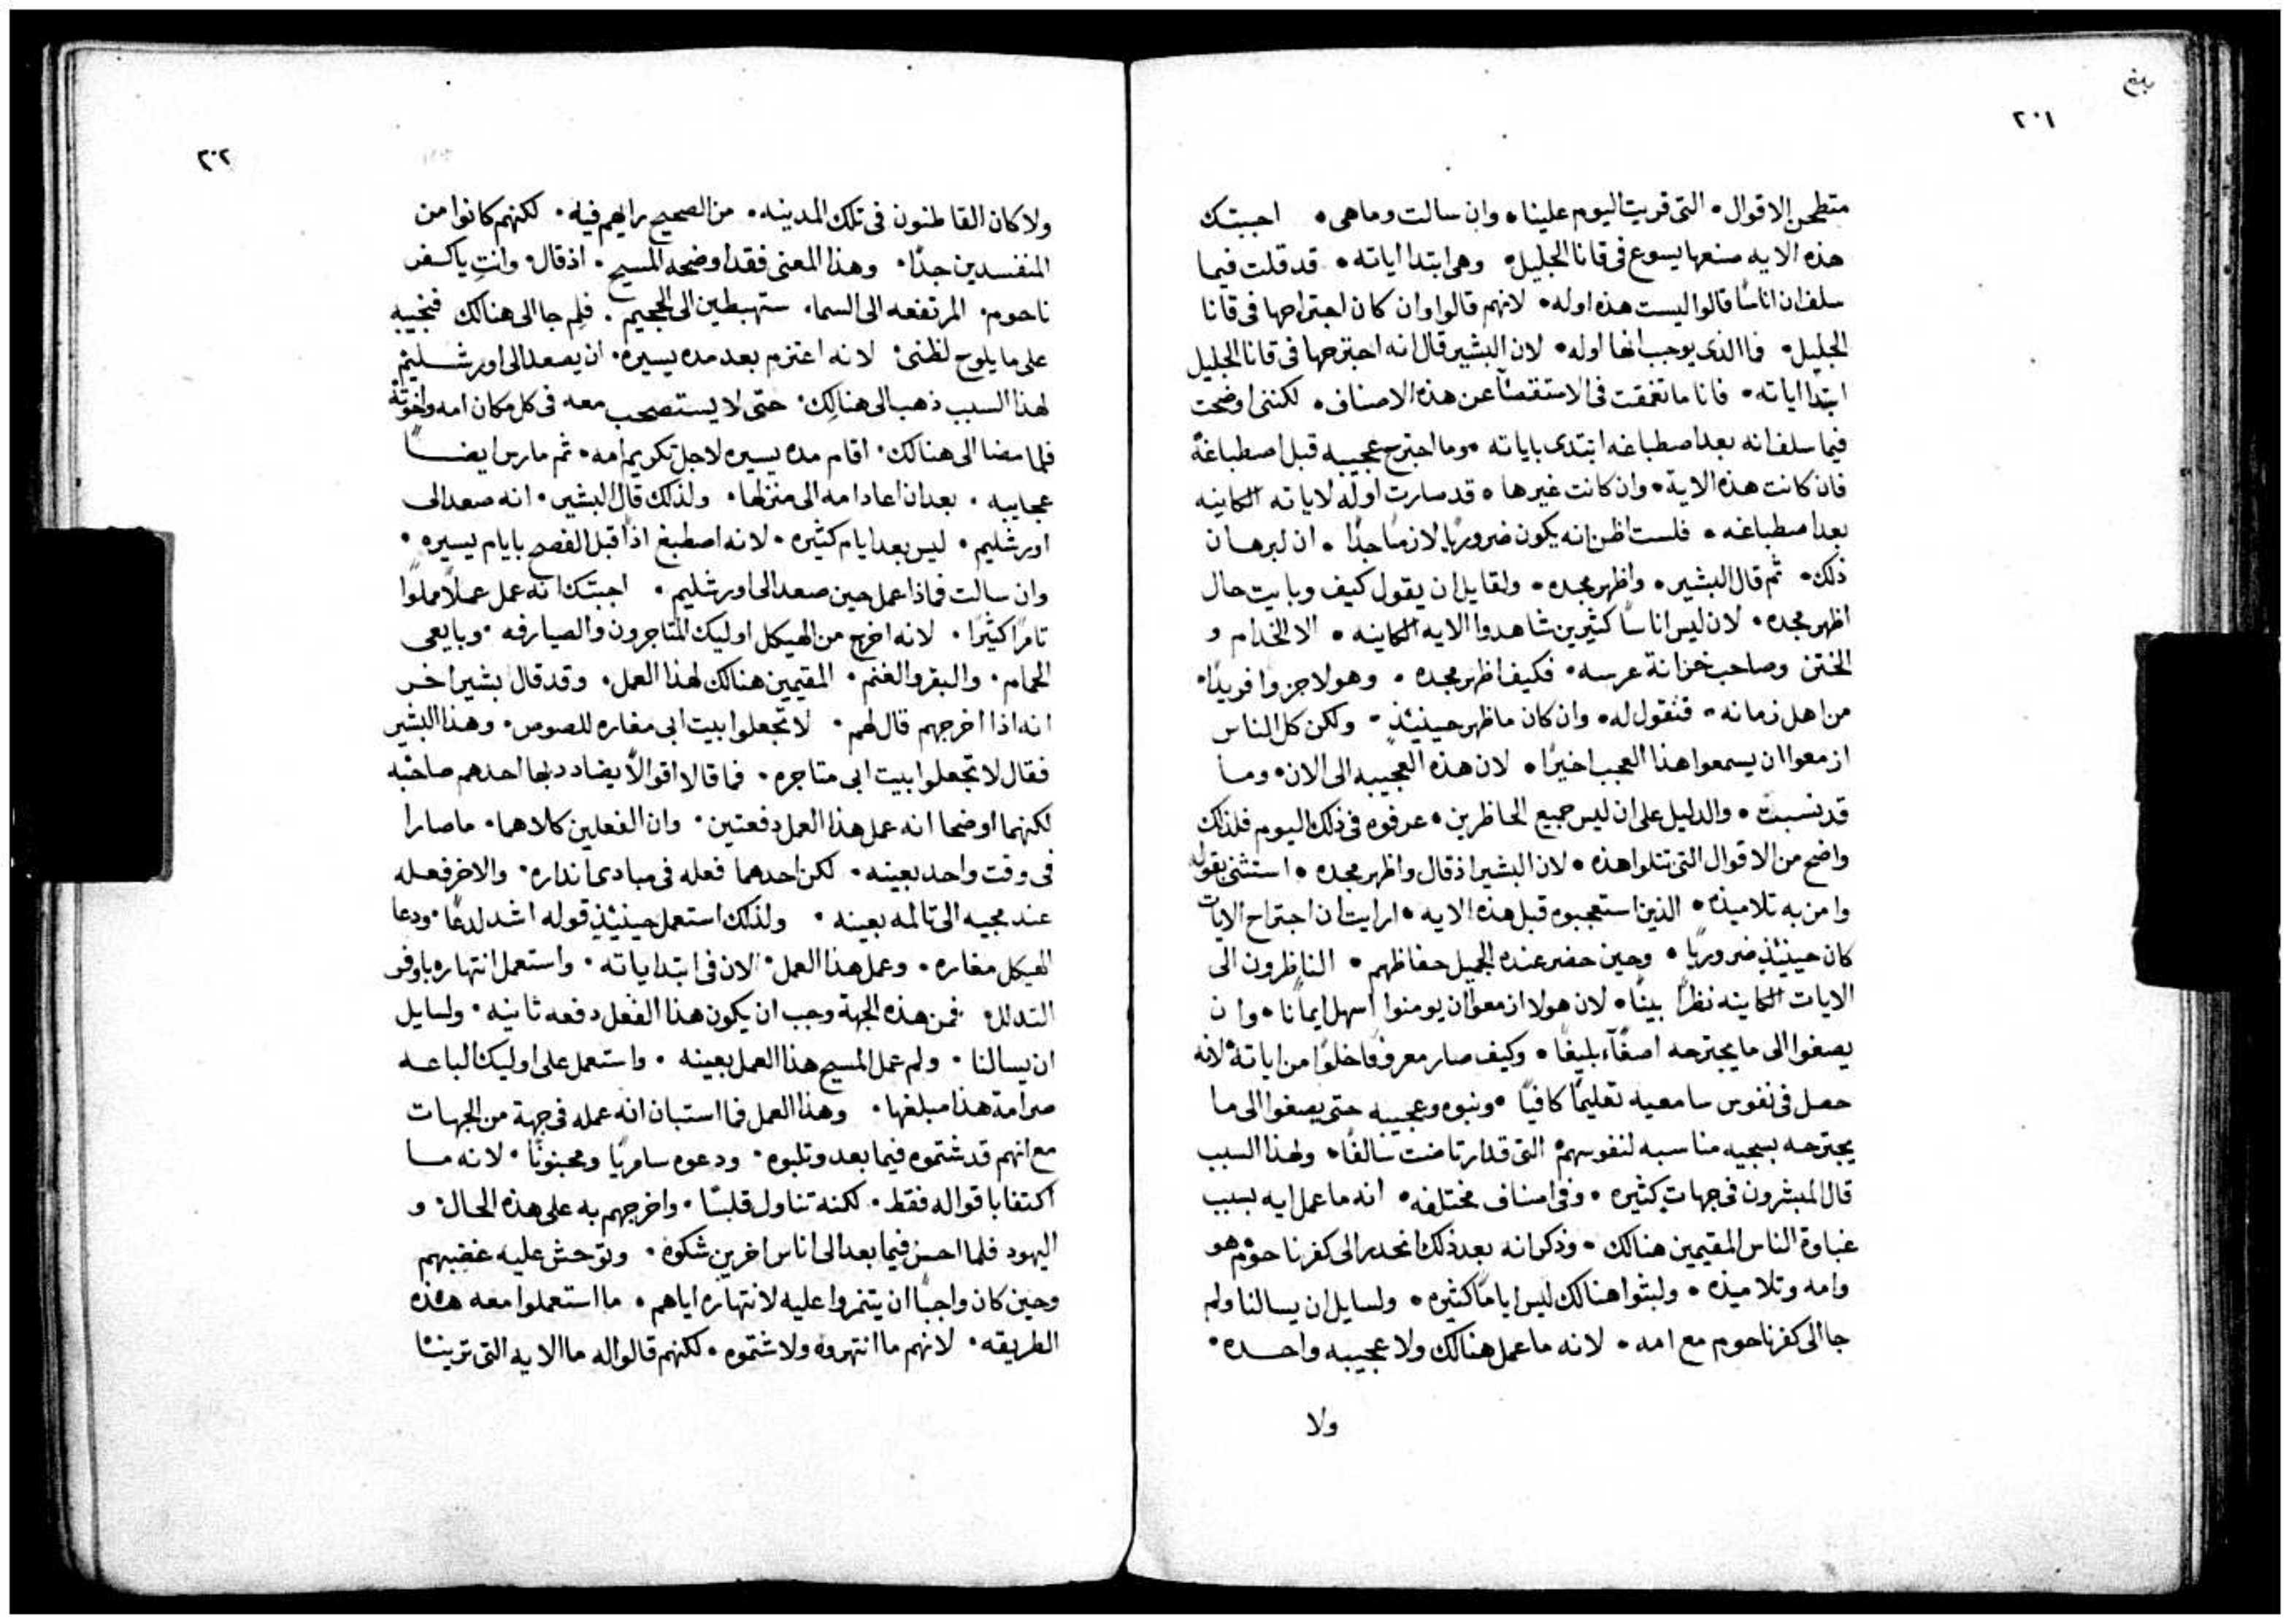 بلغ
٢٠١
متطحن الاقوال • التى قريت اليوم علينا • وان سالت وما هى • اجبتك
هذه الايه صنعها يسوع فى قانا الجليل • وهى ابتدا اياته • قد قلت فيما
سلف ان اناسًا قالوا ليست هذه اوله • لانهم قالوا وان كان اجتراحها فى قانا
الجليل • فما الذى يوجب انها اوله • لان البشير قال انه اجترحها فى قانا الجليل
ابتدا اياته • فانا ما تعمقت فى الاستقصآ عن هذه الاصناف • لكننى اوضحت
فيما سلف انه بعد اصطباغه ابتدى باياته • وما اجترح عجيبه قبل اصطباغه
فان كانت هذه الاية • وان كانت غيرها • قد صارت اوله لاياته الكاينه
بعد اصطباغه • فلست اظن انه يكون ضروريًا لازمًا جدًا • ان لبرهان
ذلك • ثم قال البشير • واظهر مجده • ولقايل ان يقول كيف وبايت حال
اظهر مجده • لان ليس اناسًا كثيرين شاهدوا الايه الكاينه • الا الخدام و
الختن وصاحب خزانة عرسه • فكيف اظهر مجده • وهولا جزوا فريدًا •
من اهل زمانه • فنقول له • وان كان ما ظهر حينيئذٍ • ولكن كل الناس
ازمعوا ان يسمعوا هذا العجب اخيرًا • لان هذه العجيبه الى الان • وما
قد نسيت • والدليل على ان ليس جميع الحاظرين • عرفوه فى ذلك اليوم فلذلك
واضح من الاقوال التى تتلوا هذه • لان البشير اذ قال واظهر مجده • استثنى بقوله
وامن به تلاميذه • الذين استعجبوه قبل هذه الايه • ارايت ان اجتراح الايات
كان حينيئذٍ ضروريًا • وحين حضر عنده الجميل حفاظهم • الناظرون الى
الايات الكاينه نظرًا بينًا • لان هولا ازمعوا ان يومنوا اسهل ايمانًا • وان
يصغوا الى ما يجترحه اصغآء بليغًا • وكيف صار معروفًا خلوًا من اياته • لانه
حصل فى نفوس سامعيه تعليمًا كافيًا • ونبوه وعجيبه حتى يصغوا الى ما
يجترحه بسجيه مناسبه لنفوسهم • التى قد ارتاضت سالفًا • ولهذا السبب
قال المبشرون فى جهات كثيره • وفى اصناف مختلفه • انه ما عمل ايه بسبب
غباوة الناس المقيمين هنالك • وذكر انه بعد ذلك انحدر الى كفرناحوم هو
وامه وتلاميذه • ولبثوا هنالك ليس ايامًا كثيره • ولسايل ان يسالنا ولم
جا الى كفرناحوم مع امه • لانه ما عمل هنالك ولا عجيبه واحده •
ولا
٢٠٢
ولا كان القاطنون فى تلك المدينه • من الصحيح رايهم فيه • لكنهم كانوا من
المنفسدين جدًا • وهذا المعنى فقد اوضحه المسيح • اذ قال • وانتِ يا كفر
ناحوم • المرتفعه الى السما • ستهبطين الى الجحيم • فلِم جا الى هنالك فنجيبه
على ما يلوح لظنى • لانه اعتزم بعد مده يسيره • ان يصعد الى اورشليم
لهذا السبب ذهب الى هنالك • حتى لا يستصحب معه فى كل مكان امه واخوته
فلما مضا الى هنالك • اقام مده يسيره لاجل تكريم امه • ثم مارس ايضًا
عجايبه • بعد ان اعاد امه الى منزلها • ولذلك قال البشير • انه صعد الى
اورشليم • ليس بعد ايام كثيره • لانه اصطبغ اذًا قبل الفصح بايام يسيره •
وان سالت فماذا عمل حين صعد الى اورشليم • اجبتك انه عمل عملًا مملوًا
تامرًا كثيرًا • لانه اخرج من الهيكل اوليك المتاجرون والصيارفه • وبايعى
الحمام • والبقر والغنم • المقيمين هنالك لهذا العمل • وقد قال بشير اخر
انه اذا اخرجهم قال لهم • لا تجعلوا بيت ابى مغاره للصوص • وهذا البشير
فقال لا تجعلوا بيت ابى متاجره • فما قالا اقوالًا يضادد بها احدهم صاحبه
لكنهما اوضحا انه عمل هذا العمل دفعتين • وان الفعلين كلاهما • ما صارا
فى وقت واحد بعينه • لكن احدهما فعله فى مبادى انذاره • والاخر فعله
عند مجيه الى تالمه بعينه • ولذلك استعمل حينيئذٍ قوله اشد لدغًا • ودعا
الهيكل مغاره • وعمل هذا العمل • الان فى ابتدا اياته • واستعمل انتهاره باوفر
التدلل • فمن هذه الجهة وجب ان يكون هذا الفعل دفعه ثانيه • ولسايل
ان يسالنا • ولم عمل المسيح هذا العمل بعينه • واستعمل على اوليك الباعه
صرامة هذا مبلغها • وهذا العمل فما استبان انه عمله فى جهة من الجهات
مع انهم قد شتموه فيما بعد وثلبوه • ودعوه سامريًا ومجنونًا • لانه ما
اكتفا باقواله فقط • لكنه تناول قلسًا • واخرجهم به على هذه الحال • و
اليهود فلما احسن فيما بعد الى اناس اخرين شكوه • وتوحش عليه غضبهم
وحين كان واجبًا ان يتنمروا عليه لانتهاره اياهم • ما استعملوا معه هذه
الطريقه • لانهم ما انتهروه ولا شتموه • لكنهم قالوا له ما الايه التى ترينا